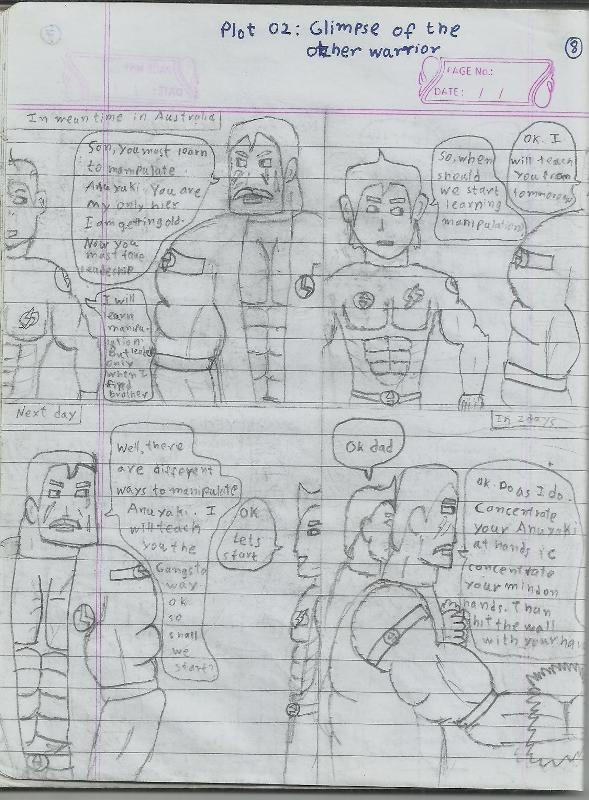 Plot 02: Glimpse of the
other warrior
8
PAGE No.:
DATE: / /
In mean time in Australia
Son, you must learn
to manipulate
Anuyaki. You are
my only hier
I am getting old.
Now you
must take
leadership
I will
learn
manipu-
lation.
But lead
only
when I
find
brother
So, when
should
we start
learning
manipulation
OK. I
will teach
you from
tommorow
Next day
Well, there
are different
ways to manipulate
Anuyaki. I
will teach
you the
Gangsta
way
ok
so
shall
we
start?
OK
Lets
start
In 2 days
Ok dad
OK. Do as I do.
Concentrate
your Anuyaki
at hands ie
concentrate
your mind on
hands. Than
hit the wall
with your han